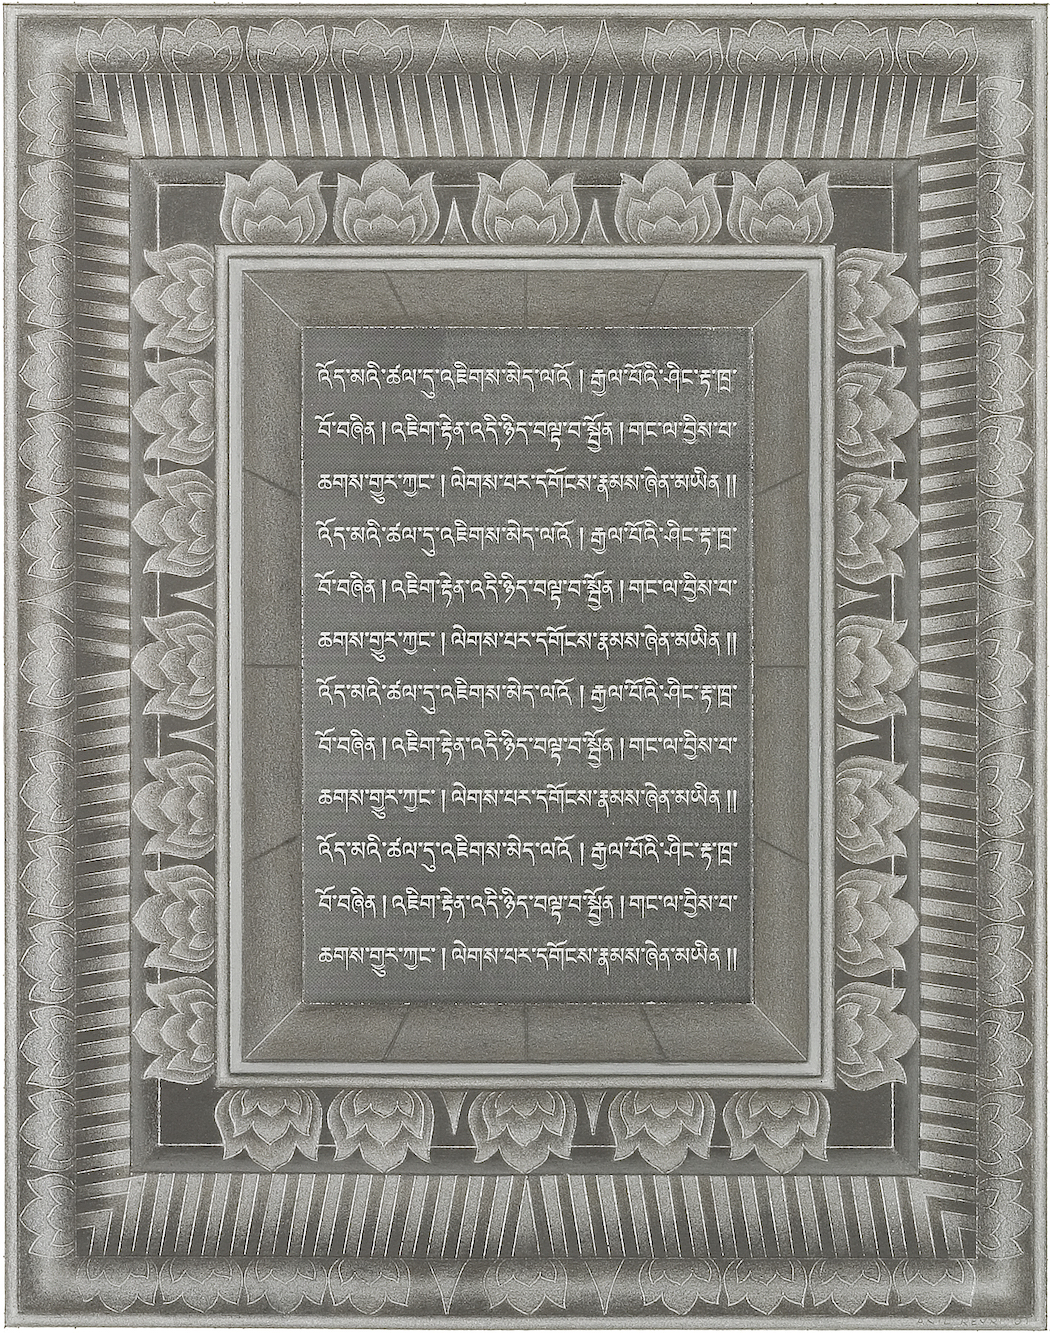 འོད་མའི་ཚལ་དུ་འཇིགས་མེད་ལའོ། རྒྱལ་པོའི་ཤིང་རྟ་ཁྲ་
བོ་བཞིན། འཇིག་རྟེན་འདི་ཉིད་བལྟ་བ་སྤྱོན། གང་ལ་བྱིས་པ་
ཆགས་གྱུར་ཀྱང་། ལེགས་པར་དགོངས་རྣམས་ཞེན་མཡིན༎
འོད་མའི་ཚལ་དུ་འཇིགས་མེད་ལའོ། རྒྱལ་པོའི་ཤིང་རྟ་ཁྲ་
བོ་བཞིན། འཇིག་རྟེན་འདི་ཉིད་བལྟ་བ་སྤྱོན། གང་ལ་བྱིས་པ་
ཆགས་གྱུར་ཀྱང་། ལེགས་པར་དགོངས་རྣམས་ཞེན་མཡིན༎
འོད་མའི་ཚལ་དུ་འཇིགས་མེད་ལའོ། རྒྱལ་པོའི་ཤིང་རྟ་ཁྲ་
བོ་བཞིན། འཇིག་རྟེན་འདི་ཉིད་བལྟ་བ་སྤྱོན། གང་ལ་བྱིས་པ་
ཆགས་གྱུར་ཀྱང་། ལེགས་པར་དགོངས་རྣམས་ཞེན་མཡིན༎
འོད་མའི་ཚལ་དུ་འཇིགས་མེད་ལའོ། རྒྱལ་པོའི་ཤིང་རྟ་ཁྲ་
བོ་བཞིན། འཇིག་རྟེན་འདི་ཉིད་བལྟ་བ་སྤྱོན། གང་ལ་བྱིས་པ་
ཆགས་གྱུར་ཀྱང་། ལེགས་པར་དགོངས་རྣམས་ཞེན་མཡིན༎